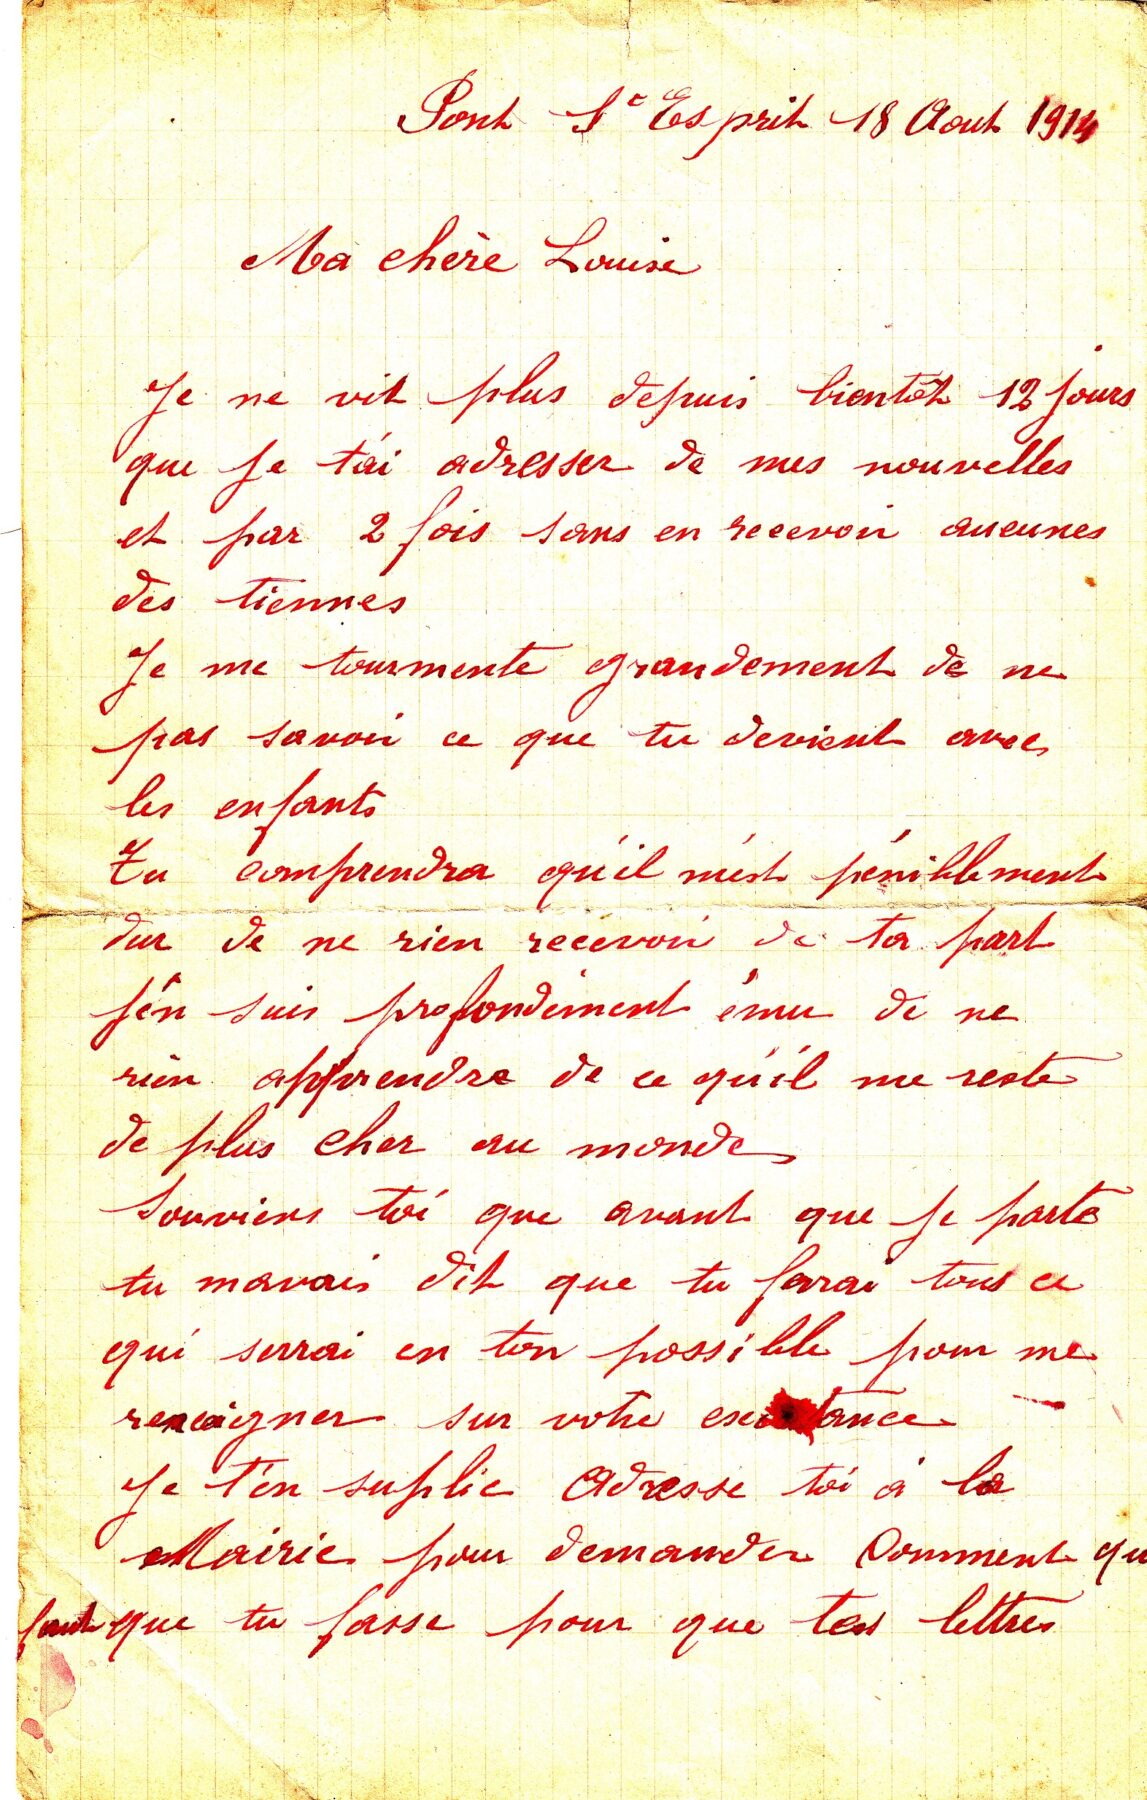 Pont St Esprit 18 Aout 1914
Ma chère Louise
Je ne vit plus depuis bientôt 12 jours
que je t'ai adresser de mes nouvelles
et par 2 fois sans en recevoir aucunes
des tiennes
Je me tourmente grandement de ne
pas savoir ce que tu devient avec
les enfants
Tu comprendra qu'il m'est péniblement
dur de ne rien recevoir de ta part
j'en suis profondément ému de ne
rien apprendre de ce qu'il me reste
de plus cher au monde
Souviens toi que avant que je parte
tu mavais dit que tu farai tous ce
qui serrai en ton possible pour me
renseigner sur votre existance
Je t'en suplie Adresse toi à la
Mairie pour demander Comment qu
faut que tu fasse pour que tes lettres